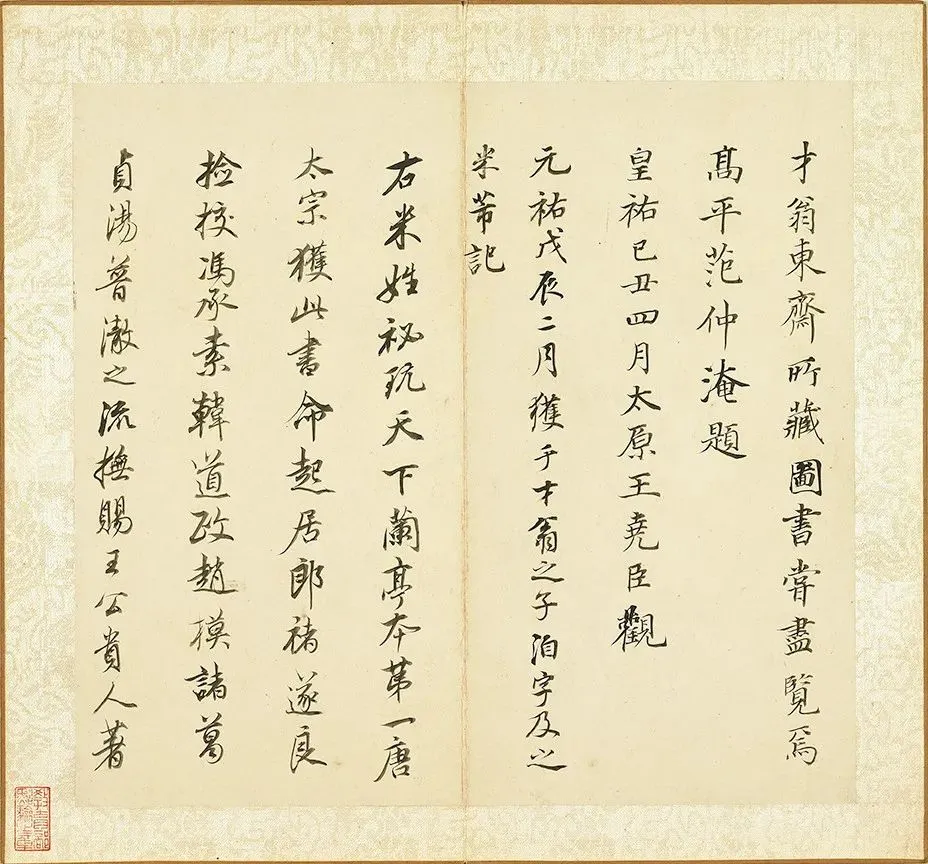 才翁東齋所藏圖書嘗盡覽焉
髙平范仲淹題
皇祐己丑四月太原王堯臣觀
元祐戊辰二月獲于才翁之子洎字及之
米芾記
右米姓祕玩天下蘭亭本第一唐
太宗獲此書命起居郎褚遂良
撿挍馮承素韓道政趙模諸葛
貞湯普澈之流摸賜王公貴人著